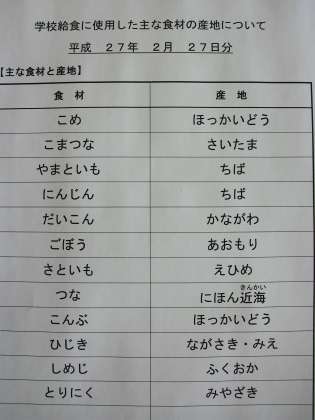 学校給食に使用した主な食材の産地について
平成　２７年　２月　２７日分
【主な食材と産地】
食　材　産　地
こめ　ほっかいどう
こまつな　さいたま
やまといも　ちば
にんじん　ちば
だいこん　かながわ
ごぼう　あおもり
さといも　えひめ
きんかい
つな　にほん近海
こんぶ　ほっかいどう
ひじき　ながさき・みえ
しめじ　ふくおか
とりにく　みやざき